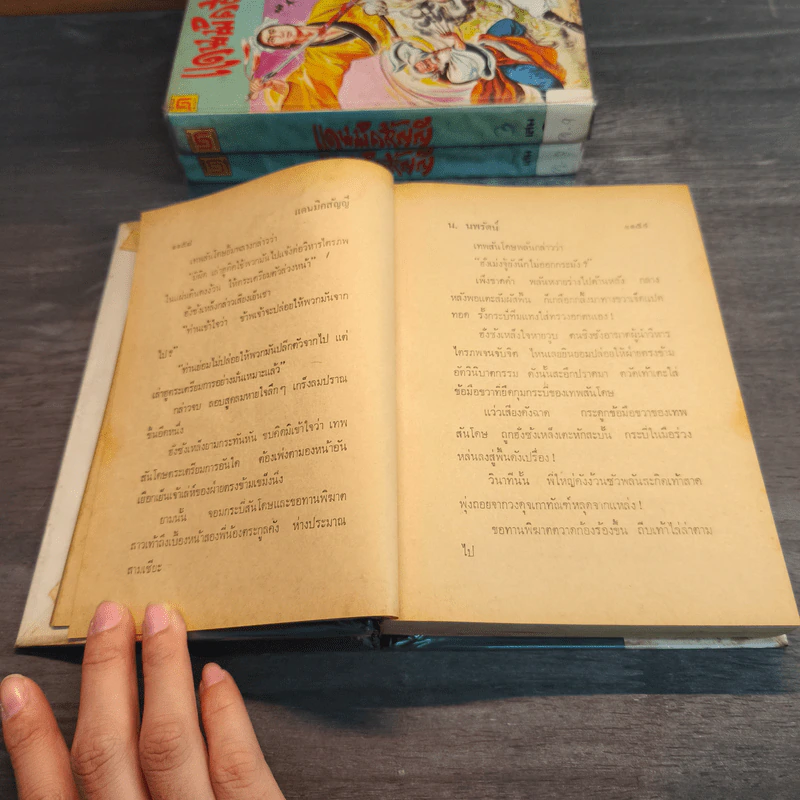 แดนมิคสัญญี
3
เล่ม
แดนมิคสัญญี
เล่ม
แดนมิคสัญญี
๑๑๕๘
เทพสันโดษยิ้มพลางกล่าวว่า
ในแผ่นดินตงง้วน ให้ตระเตรียมตัวล่วงหน้า"
ฮังซังเหล็งกล่าวเสียงเย็นชา
"ท่านเข้าใจว่า ข้าพเจ้าจะปล่อยให้พวกมันจาก
ไป ?"
"ท่านย่อมไม่ปล่อยให้พวกมันปลีกตัวจากไป แต่
เล่าฮูตระเตรียมการอย่างมั่นเหมาะแล้ว"
กล่าวจบ ลอบสูดลมหายใจลึกๆ เกร็งลมปราณ
ขึ้นอีกหนึ่ง
ฮังซังเหล็งยามกระทันหัน ขบคิดมิเข้าใจว่า เทพ
สันโดษตระเตรียมการอันใด ต้องเพ่งตามองหน้าอัน
เยือกเย็นเจ้าเล่ห์ของฝ่ายตรงข้ามเขม็งนิ่ง
ยามนั้น จอมกระบี่สันโดษและขอทานพิฆาต
ถาวเท้าถึงเบื้องหน้าสองพี่น้องตระกูลคัง ห่างประมาณ
สามเชียะ
น. นพรัตน์
๑๑๕๙
เทพสันโดษพลันกล่าวว่า
"ฮังเม่งจู้ยังนึกไม่ออกกระมัง ?"
เพิ่งขาดคำ พลันหงายร่างไปด้านหลัง กลาง
หลังพอแตะสัมผัสพื้น ก็เกลือกกลิ้งมาทางขวาเจ็ดแปด
ทอด รั้งกระบี่ทิ่มแทงใส่ทรวงอกตนเอง !
ฮังซังเหล็งใจหายวูบ ตนชิงชังอาฆาตผู้นำวิหาร
ไตรภาพจนจับจิต ไหนเลยยินยอมปล่อยให้ฝ่ายตรงข้าม
อัตวินิบาตกรรม ดังนั้นสะอึกปราดมา ตวัดเท้าเตะใส่
ข้อมือขวาที่ยึดกุมกระบี่ของเทพสันโดษ
แว่วเสียงดังฉาด กระดูกข้อมือขวาของเทพ
สันโดษ ถูกฮังซังเหล็งเตะหักสะบั้น กระบี่ในมือร่วง
หล่นลงสู่พื้นดังเปรื่อง !
วินาทีนั้น พี่ใหญ่คังง้วนชัวพลันสะกิดเท้าลาด
พุ่งถอยจากวงดุจเกาทัณฑ์หลุดจากแหล่ง !
ขอทานพิฆาตตวาดก้องร้องขึ้น ถีบเท้าไล่ล่าตาม
ไป